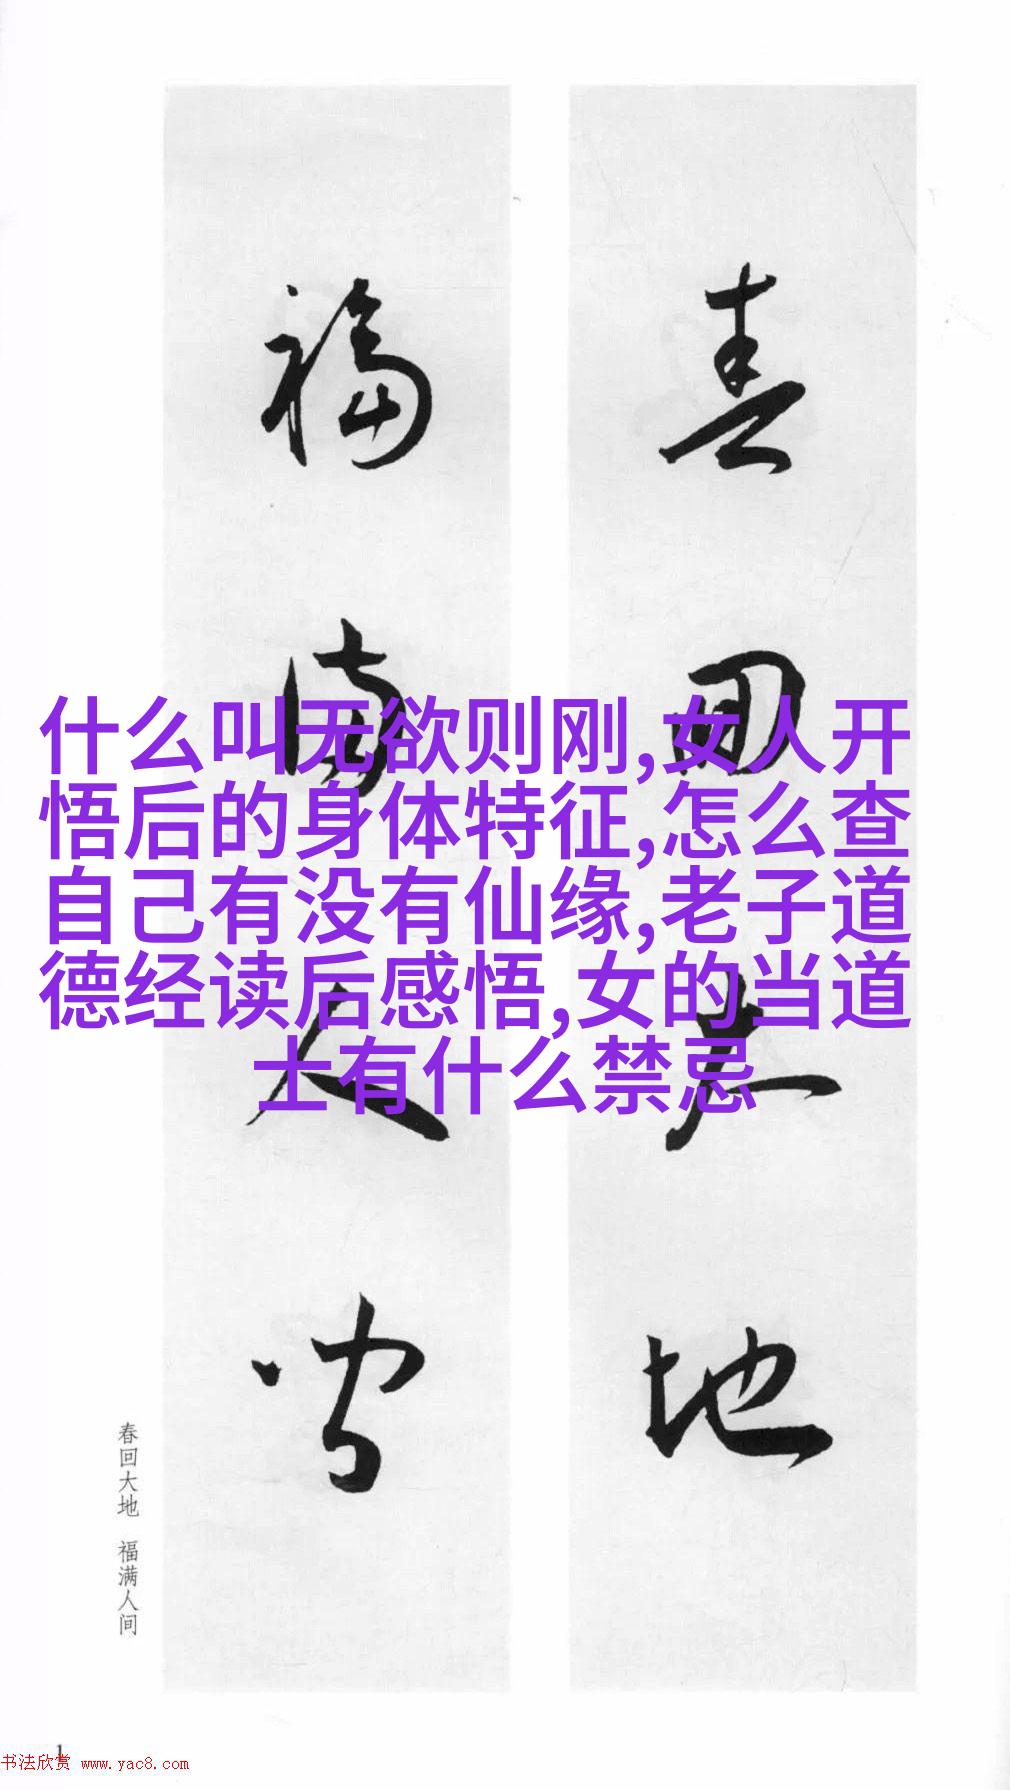 春回大地
福满人间
什么叫无欲则刚,女人开
悟后的身体特征,怎么查
自己有没有仙缘,老子道
德经读后感悟,女的当道
士有什么禁忌
春回大地 福满人间
1
书法欣赏 www.yac8.com